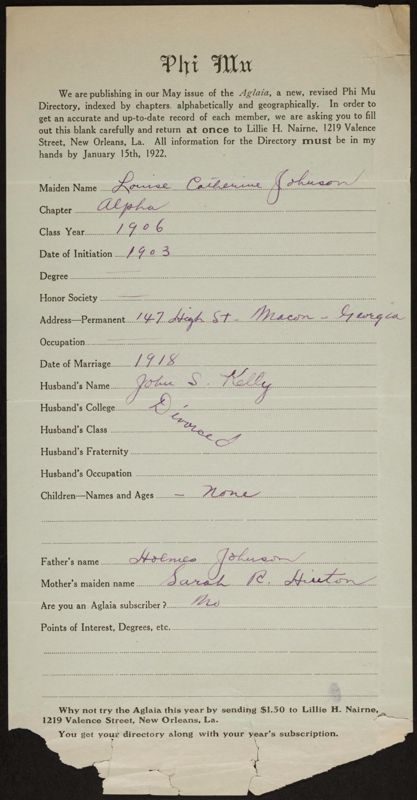 Phi Mu
We are publishing in our May issue of the Aglaia, a new, revised Phi Mu
Directory, indexed by chapters alphabetically and geographically. In order to
get an accurate and up-to-date record of each member, we are asking you to fill
out this blank carefully and return at once to Lillie H. Nairne, 1219 Valence
Street, New Orleans, La. All information for the Directory must be in my
hands by January 15th, 1922.
Maiden Name Louise Catherine Johnson
Chapter Alpha
Class Year 1906
Date of Initiation 1903
Degree
Honor Society
Address—Permanent 147 High St - Macon - Georgia
Occupation
Date of Marriage 1918
Husband's Name John S. Kelly
Husband's College Divorced
Husband's Class
Husband's Fraternity
Husband's Occupation
Children—Names and Ages - None
Father's name Holmes Johnson
Mother's maiden name Sarah R. Hinton
Are you an Aglaia subscriber? No
Points of Interest, Degrees, etc.
Why not try the Aglaia this year by sending $1.50 to Lillie H. Nairne,
1219 Valence Street, New Orleans, La.
You get your directory along with your year's subscription.